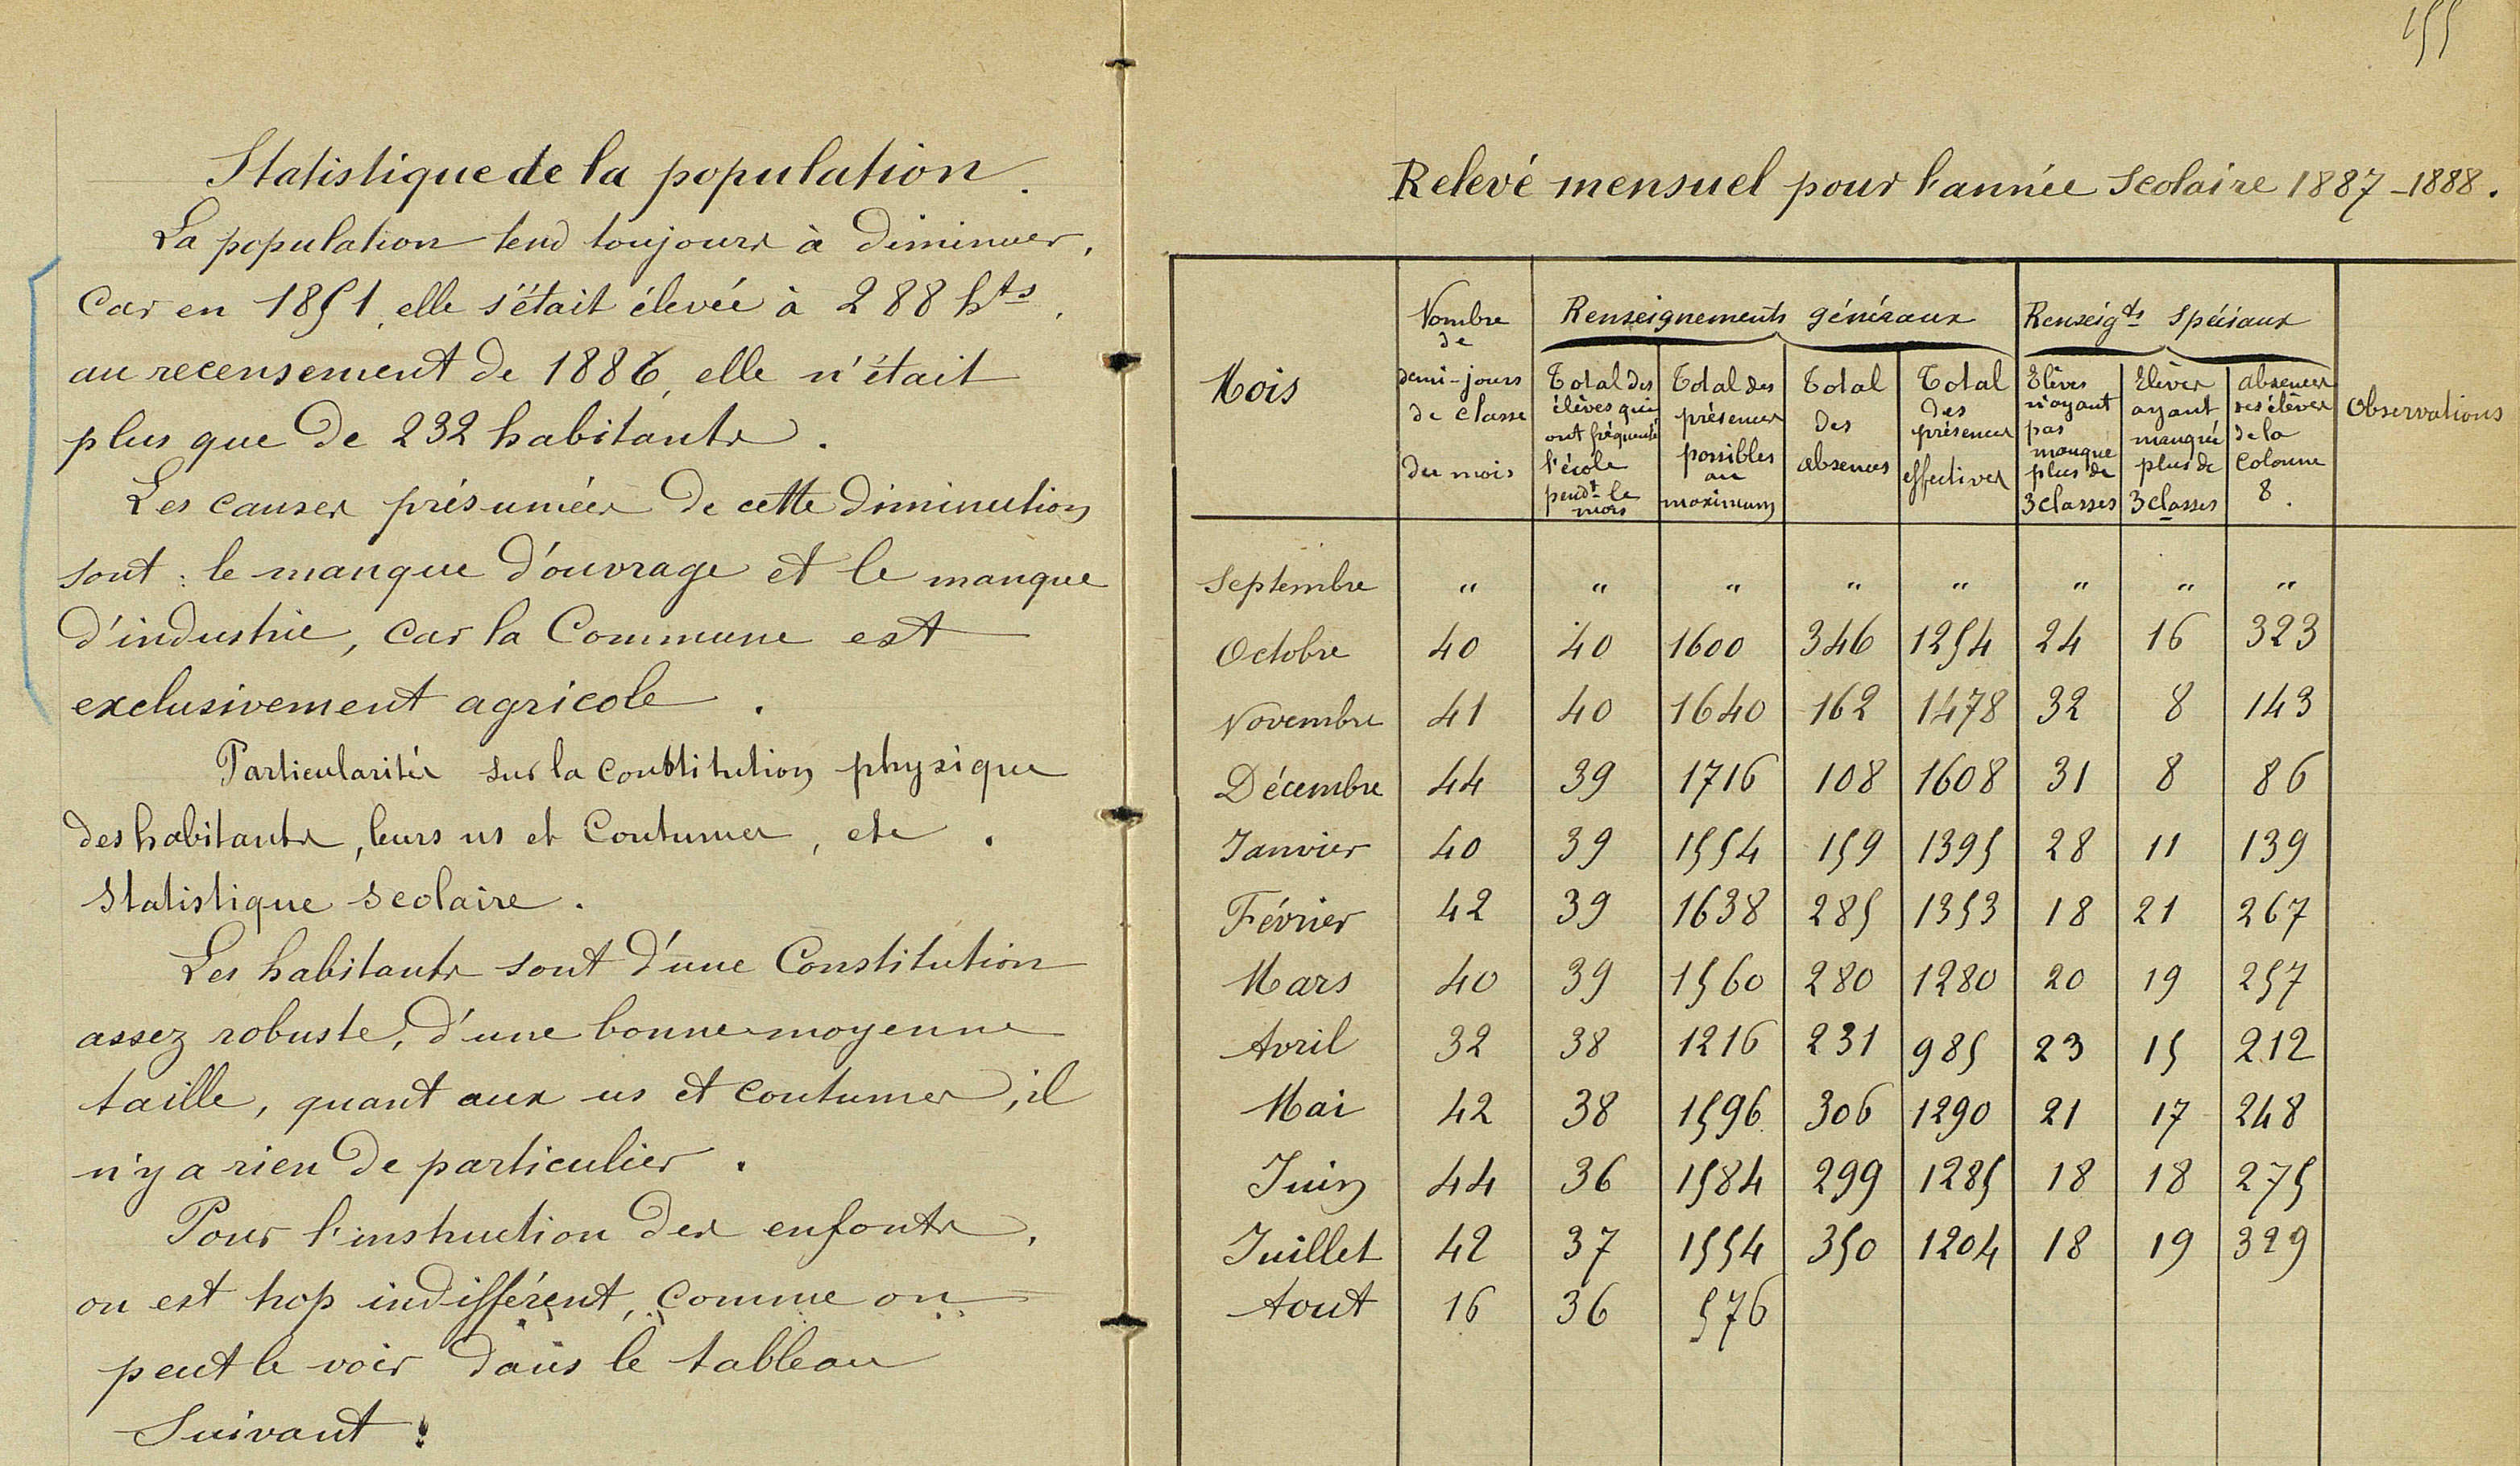 Statistique de la population.
La population tend toujours à diminuer,
car en 1851, elle s'était élevée à 288 hts,
au recensement de 1886, elle n'était
plus que de 232 habitants.
Les causes présumées de cette diminution
sont : le manque d'ouvrage et le manque
d'industrie, car la Commune est
exclusivement agricole.
Particularités sur la constitution physique
des habitants, leurs us et Coutumes, etc.
Statistique scolaire.
Les habitants sont d'une Constitution
assez robuste, d'une bonne moyenne
taille, quant aux us et coutumes, il
n'y a rien de particulier.
Pour l'instruction des enfants,
on est trop indifférent, comme on
peut le voir dans le tableau
Suivant :
155
Relevé mensuel pour l'année Scolaire 1887-1888.
Mois
Nombre
de
demi-jours
de classe
du mois
Renseignements généraux
Total des
élèves qui
ont fréquenté
l'école
pendt le
mois
Total des
présences
possibles
au
maximum
Total
des
absences
Total
des
présences
effectives
Renseigts spéciaux
Elèves
n'ayant
pas
manqué
plus de
3 classes
Elèves
ayant
manqué
plus de
3 classes
absences
des élèves
de la
Colonne
8.
Observations
Septembre " " " " " " " "
Octobre 40 40 1600 346 1254 24 16 323
Novembre 41 40 1640 162 1478 32 8 143
Décembre 44 39 1716 108 1608 31 8 86
Janvier 40 39 1554 159 1395 28 11 139
Février 42 39 1638 285 1353 18 21 267
Mars 40 39 1560 280 1280 20 19 257
Avril 32 38 1216 231 985 23 15 212
Mai 42 38 1596 306 1290 21 17 248
Juin 44 36 1584 299 1285 18 18 275
Juillet 42 37 1554 350 1204 18 19 329
Aout 16 36 576